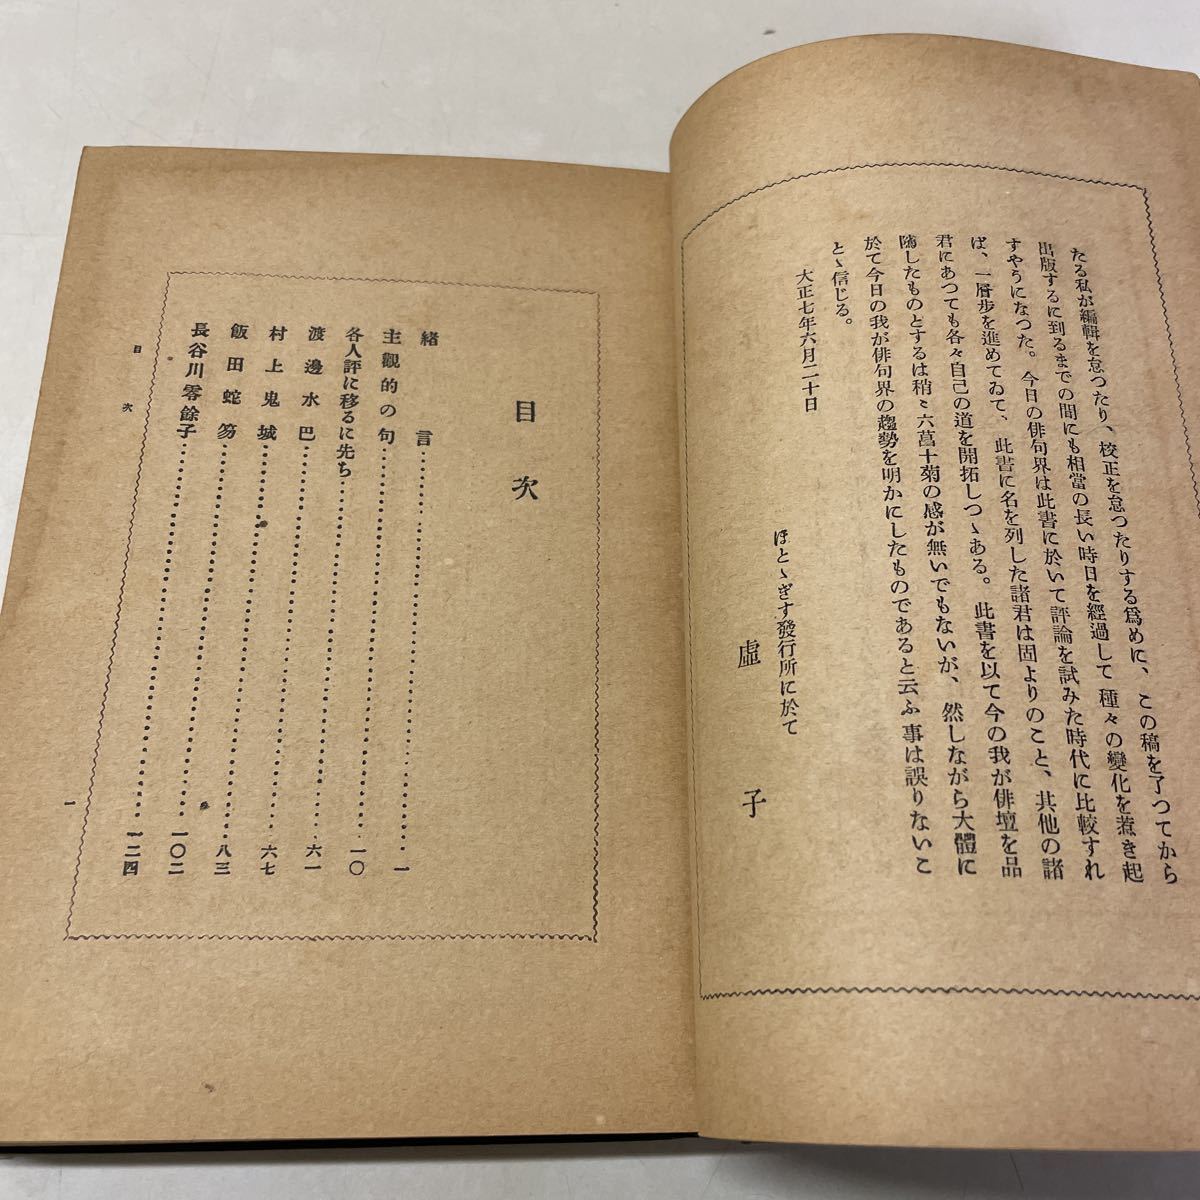 たる私が編輯を怠つたり、校正を怠つたりする爲めに、この稿を了つてから
出版するに到るまでの間にも相當の長い時日を經過して種々の變化を惹き起
すやうになつた。今日の俳句界は此書に於いて評論を試みた時代に比較すれ
ば、一層歩を進めてゐて、此書に名を列した諸君は固よりのこと、其他の諸
君にあつても各々自己の道を開拓しつゝある。此書を以て今の我が俳壇を品
隲したものとするは稍々六菖十菊の感が無いでもないが、然しながら大體に
於て今日の我が俳句界の趨勢を明かにしたものであると云ふ事は誤りないこ
とゝ信じる。
大正七年六月二十日
ほとゝぎす發行所に於て
虛子
目次
緒言……一
主觀的の句……一〇
各人評に移るに先ち……六一
渡邊水巴……六七
村上鬼城……八三
飯田蛇笏……一〇二
長谷川零餘子……一二四
目次
一